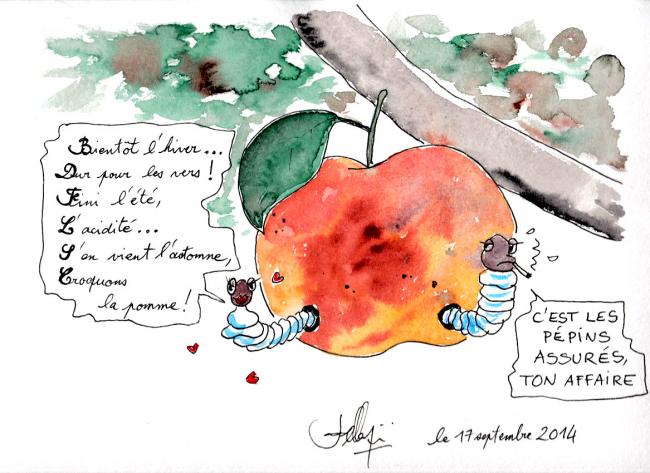 Bientôt l'hiver...
Dur pour les vers !
Fini l'été,
L'acidité...
S'en vient l'automne,
Croquons
la pomme !
C'EST LES
PÉPINS
ASSURÉS,
TON AFFAIRE
le 17 septembre 2014